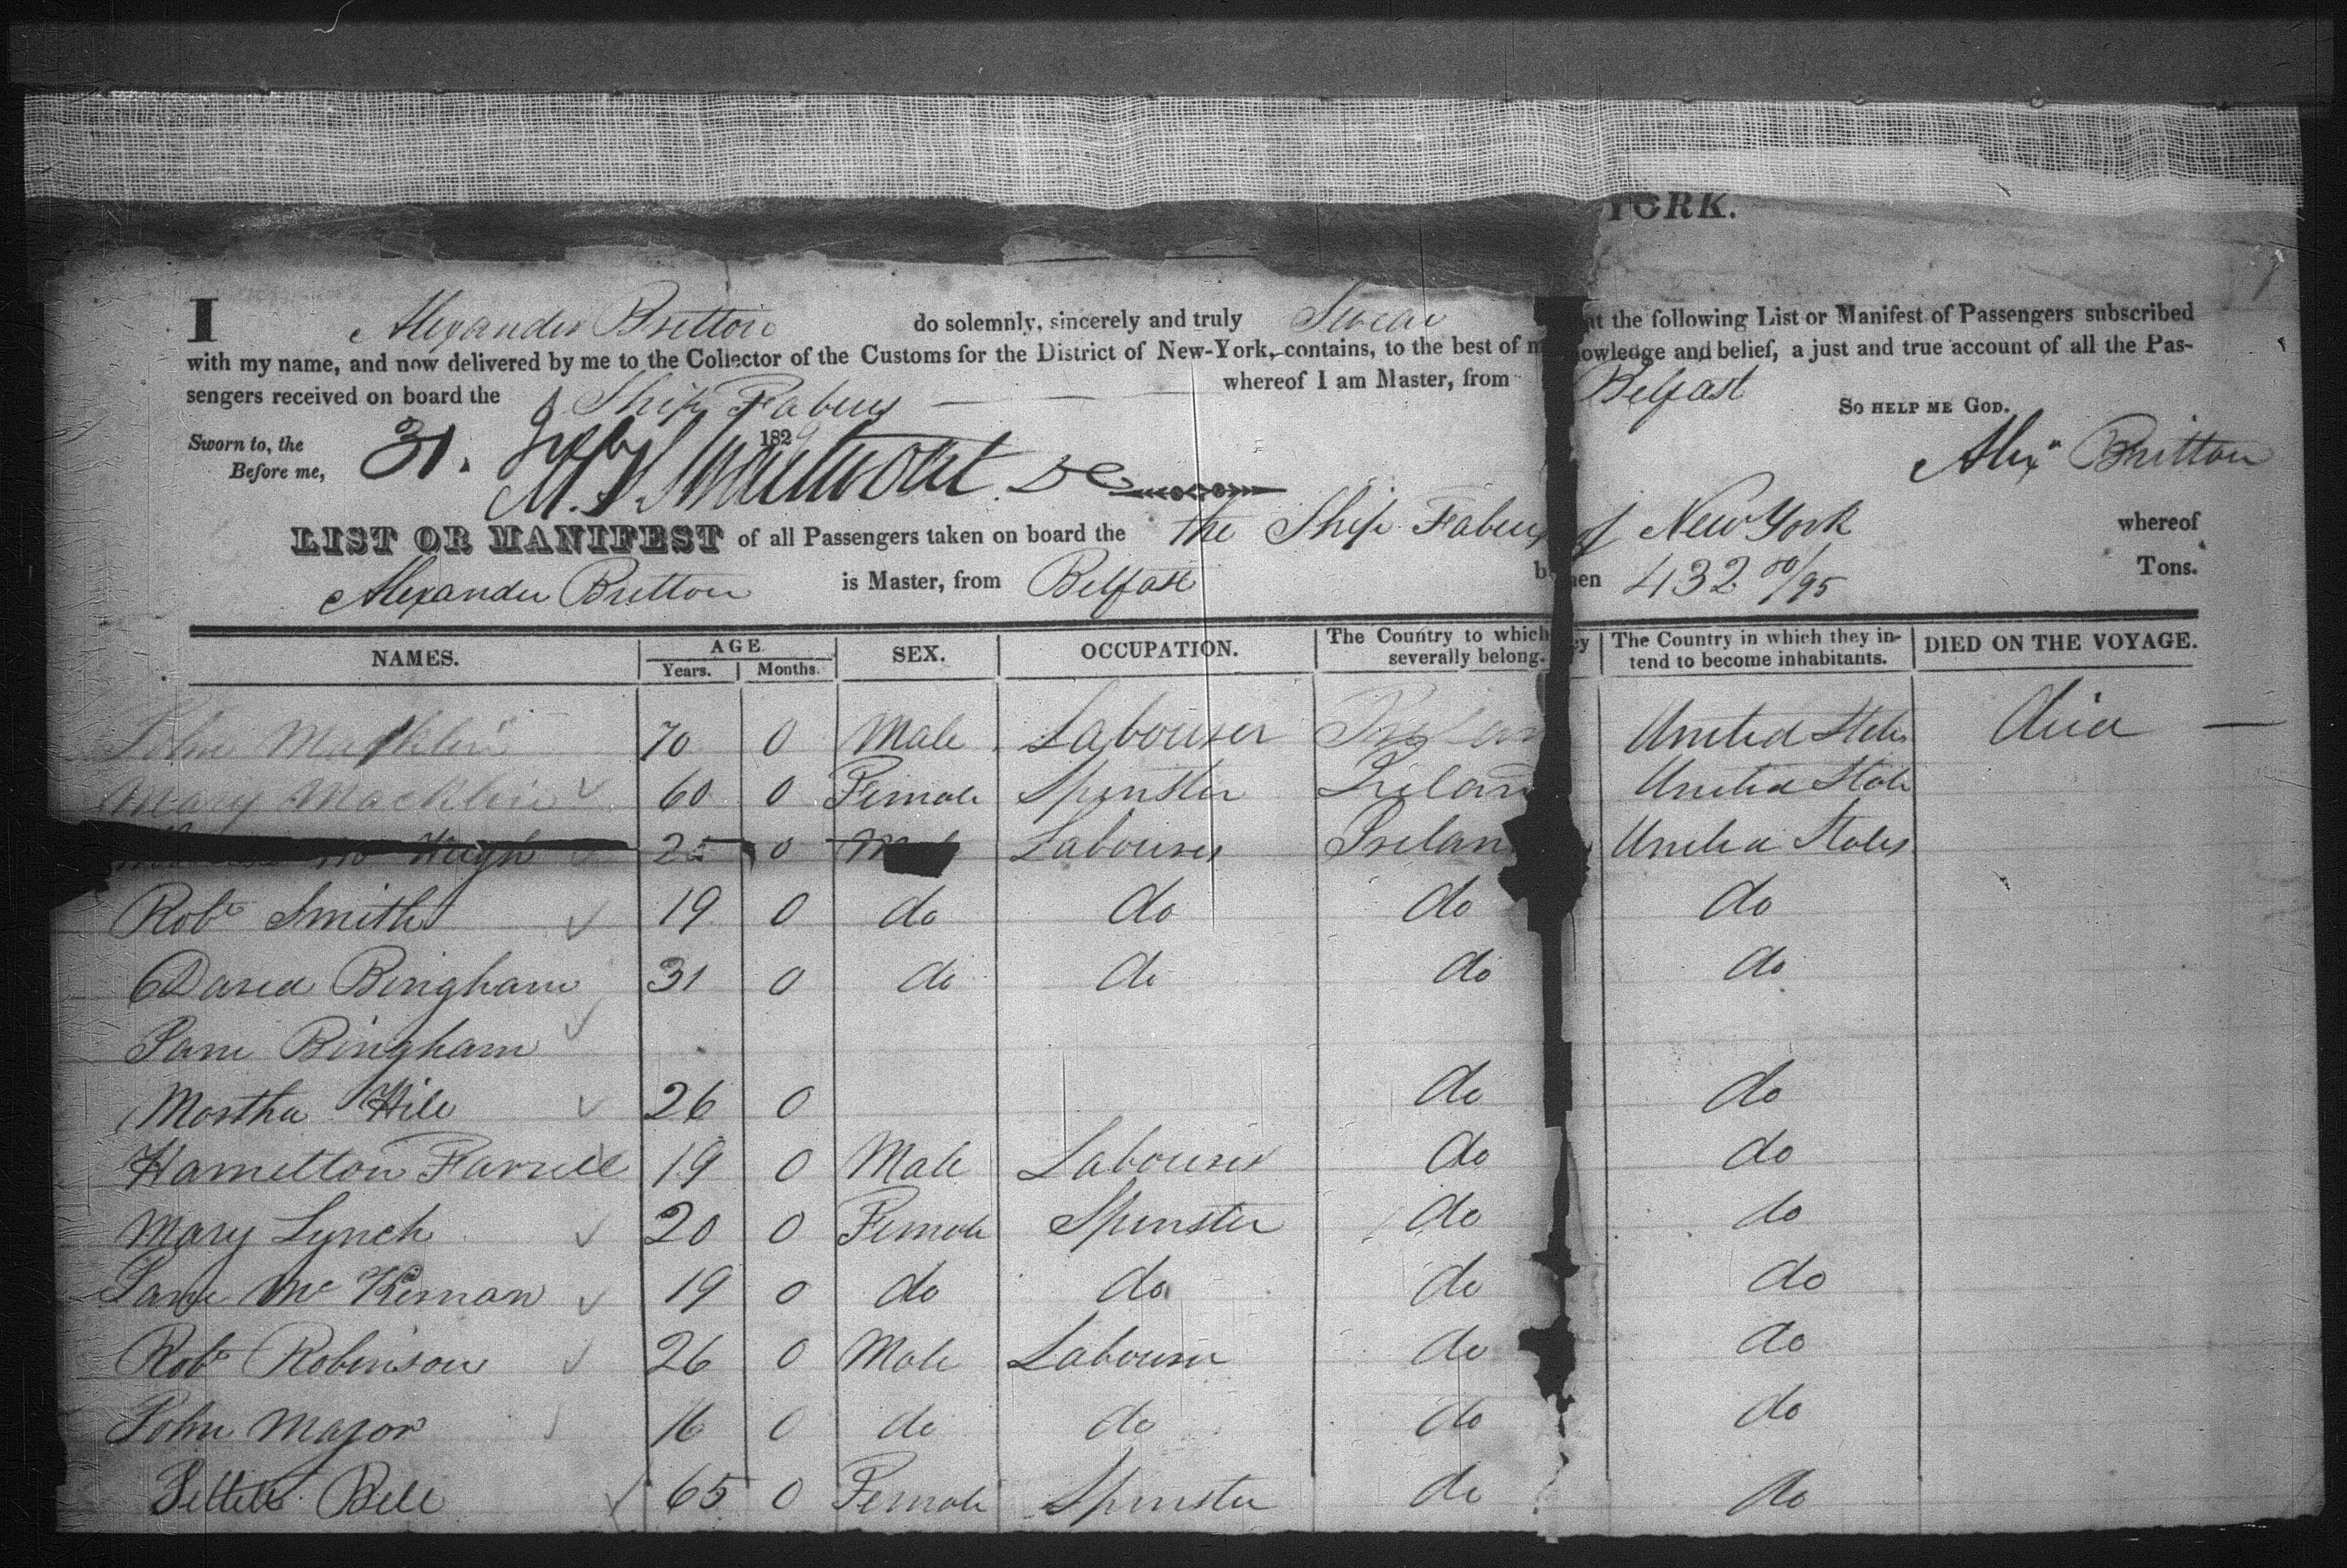 YORK.
I Alexander Britton do solemnly, sincerely and truly Swear at the following List or Manifest of Passengers subscribed
with my name, and now delivered by me to the Collector of the Customs for the District of New-York, contains, to the best of m owledge and belief, a just and true account of all the Pas-
sengers received on board the Ship Fabius whereof I am Master, from Belfast
SO HELP ME GOD.
Sworn to, the 31. July 182
Before me,
Alexr Britton
LIST OR MANIFEST of all Passengers taken on board the the Ship Fabius of New York whereof
Alexander Britton is Master, from Belfast b hen 432 00/95 Tons.
NAMES. AGE SEX. OCCUPATION. The Country to which ey severally belong. The Country in which they in-tend to become inhabitants. DIED ON THE VOYAGE.
Years. Months.
John Macklin 70 0 Male Labourer Irelan United States Died —
Mary Macklin 60 0 Female Spinster Irelan United State
Mc Hugh 25 0 Labourer Irelan United States
Robt Smith 19 0 do do do do
David Bingham 31 0 do do do do
Jane Bingham
Martha Hill 26 0 do do
Hamilton Farrell 19 0 Male Labourer do do
Mary Lynch 20 0 Female Spinster do do
Jane Mc Kernan 19 0 do do do do
Robt Robinson 26 0 Male Labourer do do
John Major 16 0 do do do do
Bell 65 0 Female Spinster do do